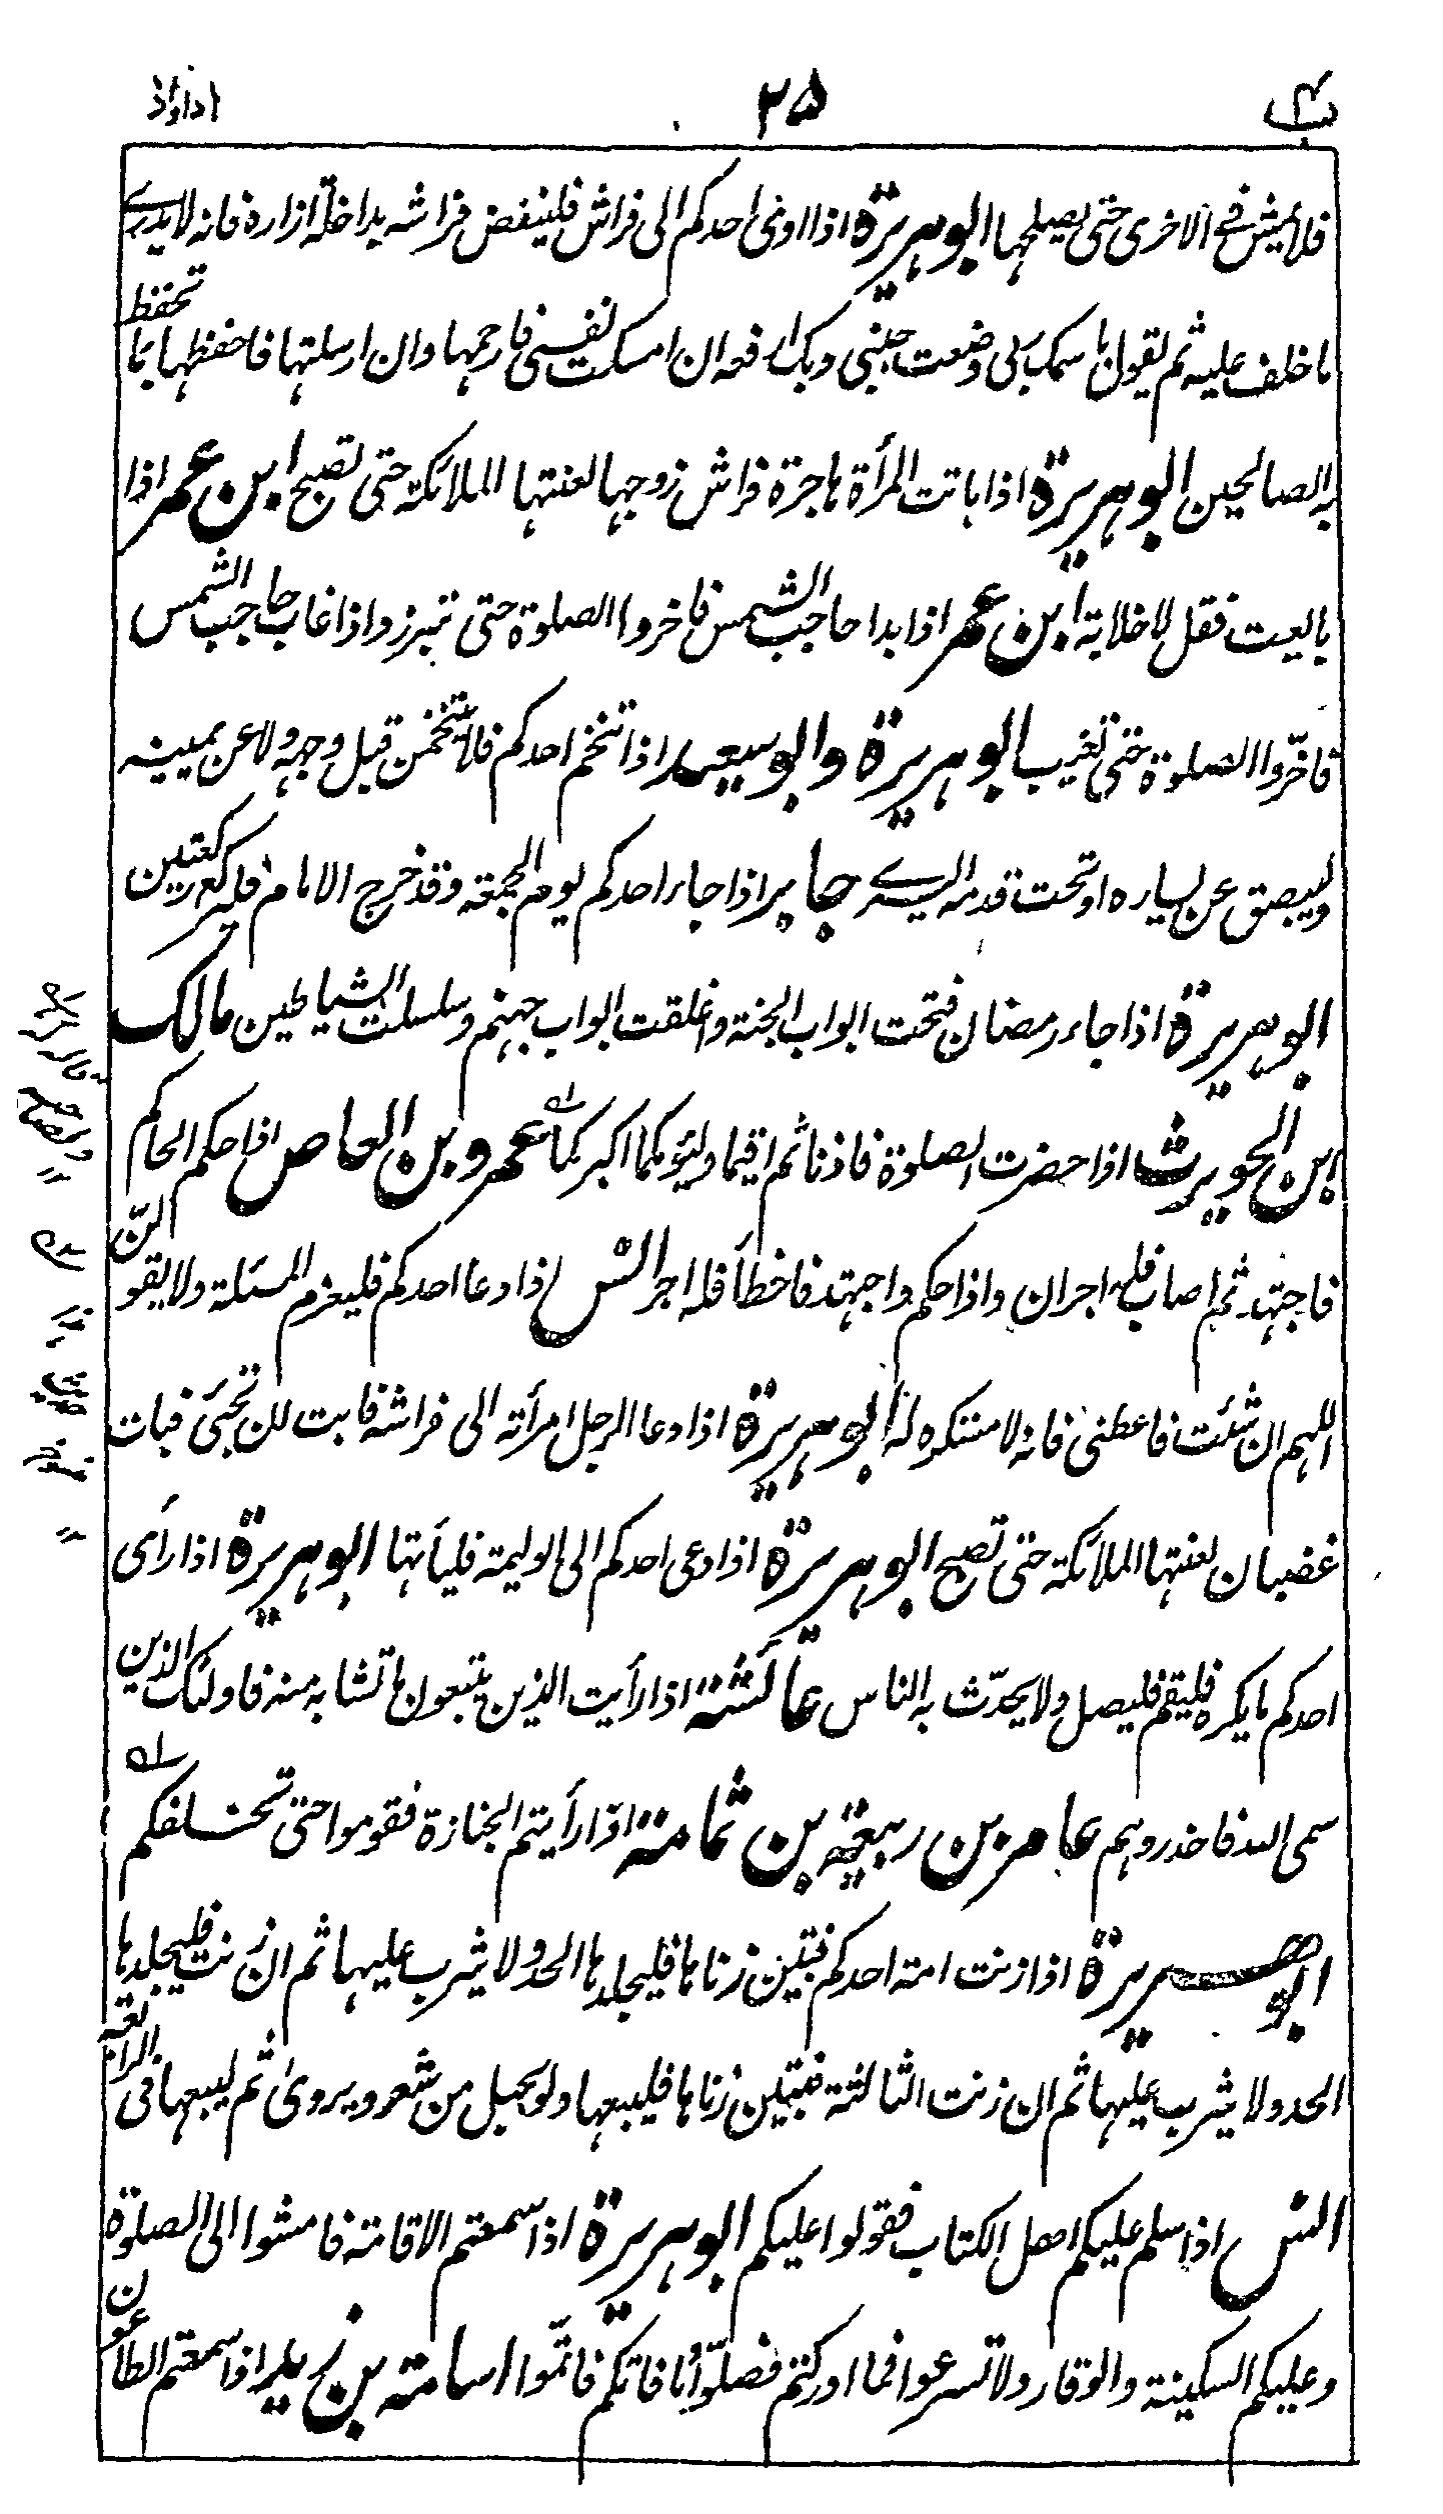 ب٢ ٢٥ اذا واذ
فلا يمش في الاخرى حتى يصلحها ابو هريرة اذا اوى احدكم الى فراش فلينفض فراشه بداخلة ازاره فانه لا يدرے
ما خلف عليه ثم يقول باسمك ربى وضعت جنبى وبك ارفعه ان امسكت نفسى فارحمها وان ارسلتها فاحفظها بما تحفظ
به الصالحين ابو هريرة اذا باتت المرأة هاجرة فراش زوجها لعنتها الملائكة حتى تصبح ابن عمر اذا
بايعت فقل لا خلابة ابن عمر اذا بدا حاجب الشمس فاخروا الصلوة حتى تبرز واذا غاب حاجب الشمس
فاخّروا الصلوة حتى تغيب ابو هريرة وابو سعيد اذا تنخم احدكم فلا يتنخمن قبل وجهه ولا عن يمينه
وليبصق عن يساره او تحت قدمه اليسرے جابر اذا جاء احدكم يوم الجمعة وقد خرج الامام فليركع ركعتين
ابو هريرة اذا جاء رمضان فتحت ابواب الجنة واغلقت ابواب جهنم وسلسلت الشياطين مالك
بن الحويرث اذا حضرت الصلوة فاذنا ثم اقيما وليؤمكما اكبركما عمرو بن العاص اذا حكم الحاكم
فاجتهد ثم اصاب فله اجران واذا حكم واجتهد فاخطأ فله اجر انس اذا دعا احدكم فليعزم المسئلة ولا يقولنّ
اللهم ان شئت فاعطنى فانه لا مستكره له ابو هريرة اذا دعا الرجل امرأته الى فراشه فابت ان تجئ فبات
غضبان لعنتها الملائكة حتى تصبح ابو هريرة اذا دعى احدكم الى الوليمة فليأتها ابو هريرة اذا رأى
احدكم ما يكره فليقم فليصل ولا يحدّث به الناس عائشة اذا رأيت الذين يتبعون ما تشابه منه فاولئك الذين
سمى الله فاحذروهم عامر بن ربيعة بن ثمامة اذا رأيتم الجنازة فقوموا حتى تخلفكم
ابو هريرة اذا زنت امة احدكم فتبين زناها فليجلدها الحد ولا يثرب عليها ثم ان زنت فليجلدها
الحد ولا يثرب عليها ثم ان زنت الثالثة فتبين زناها فليبعها ولو بحبل من شعر ويروى ثم ليبعها فى الرابعة
انس اذا سلم عليكم اهل الكتاب فقولوا عليكم ابو هريرة اذا سمعتم الاقامة فامشوا الى الصلوة
وعليكم السكينة والوقار ولا تسرعوا فما ادركتم فصلّوا وما فاتكم فاتمّوا اسامة بن زيد اذا سمعتم الطاعون